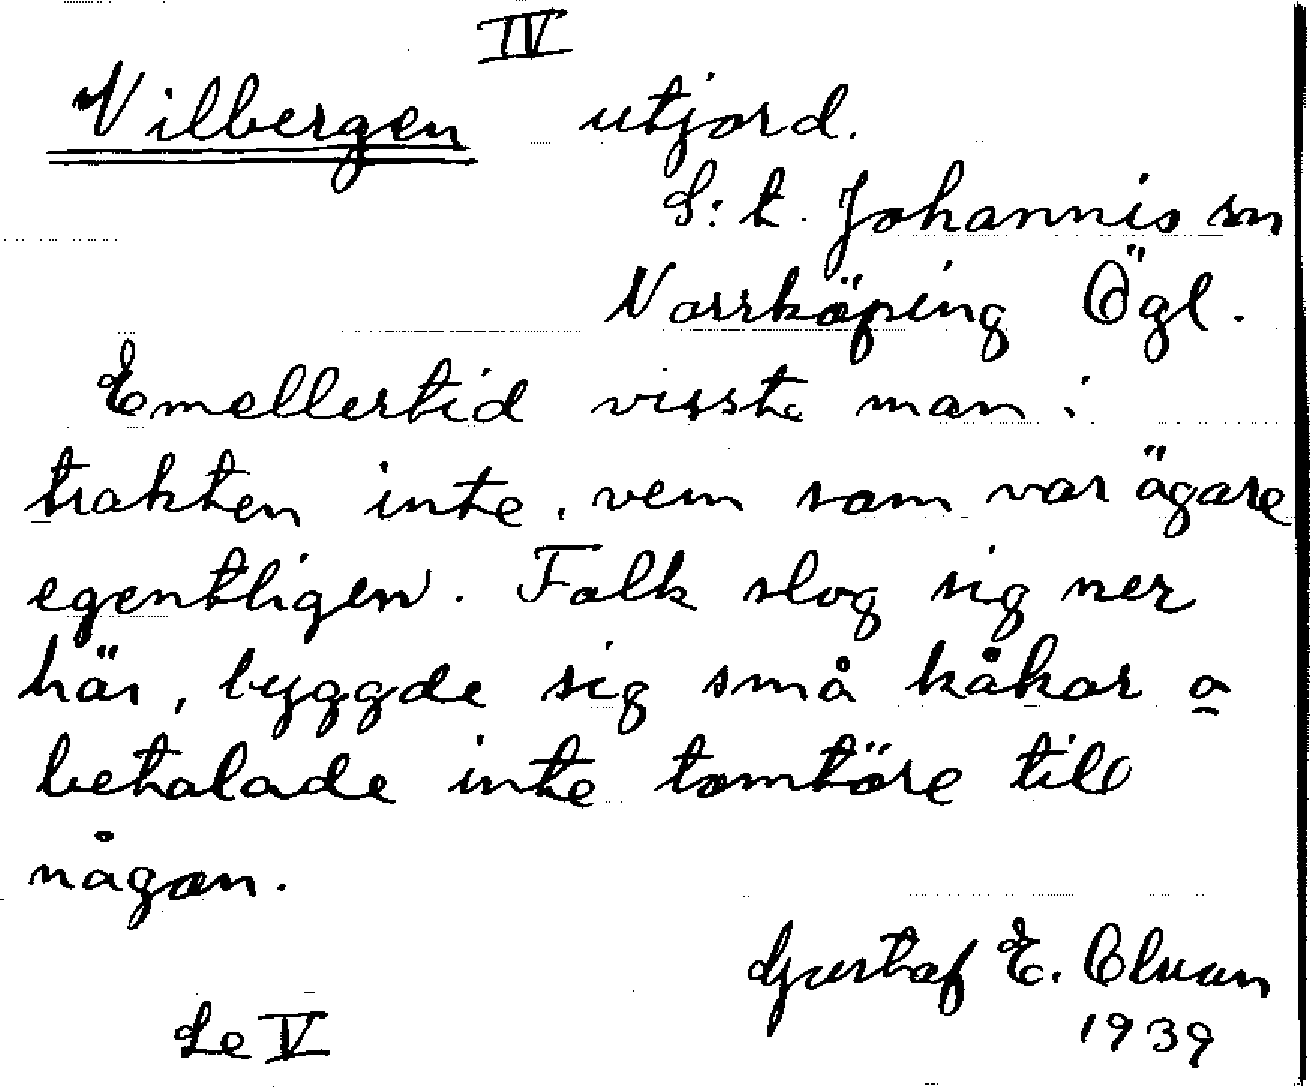 IV
Vilbergen utjord.
S:t. Johannis sn
Norrköping Ögl.
Emellertid visste man i
trakten inte, vem som var ägare
egentligen. Folk slog sig ner
här, byggde sig små kåkar o
betalade inte tomtöre till
någon.
Gustaf E. Olsson
1939
Se V